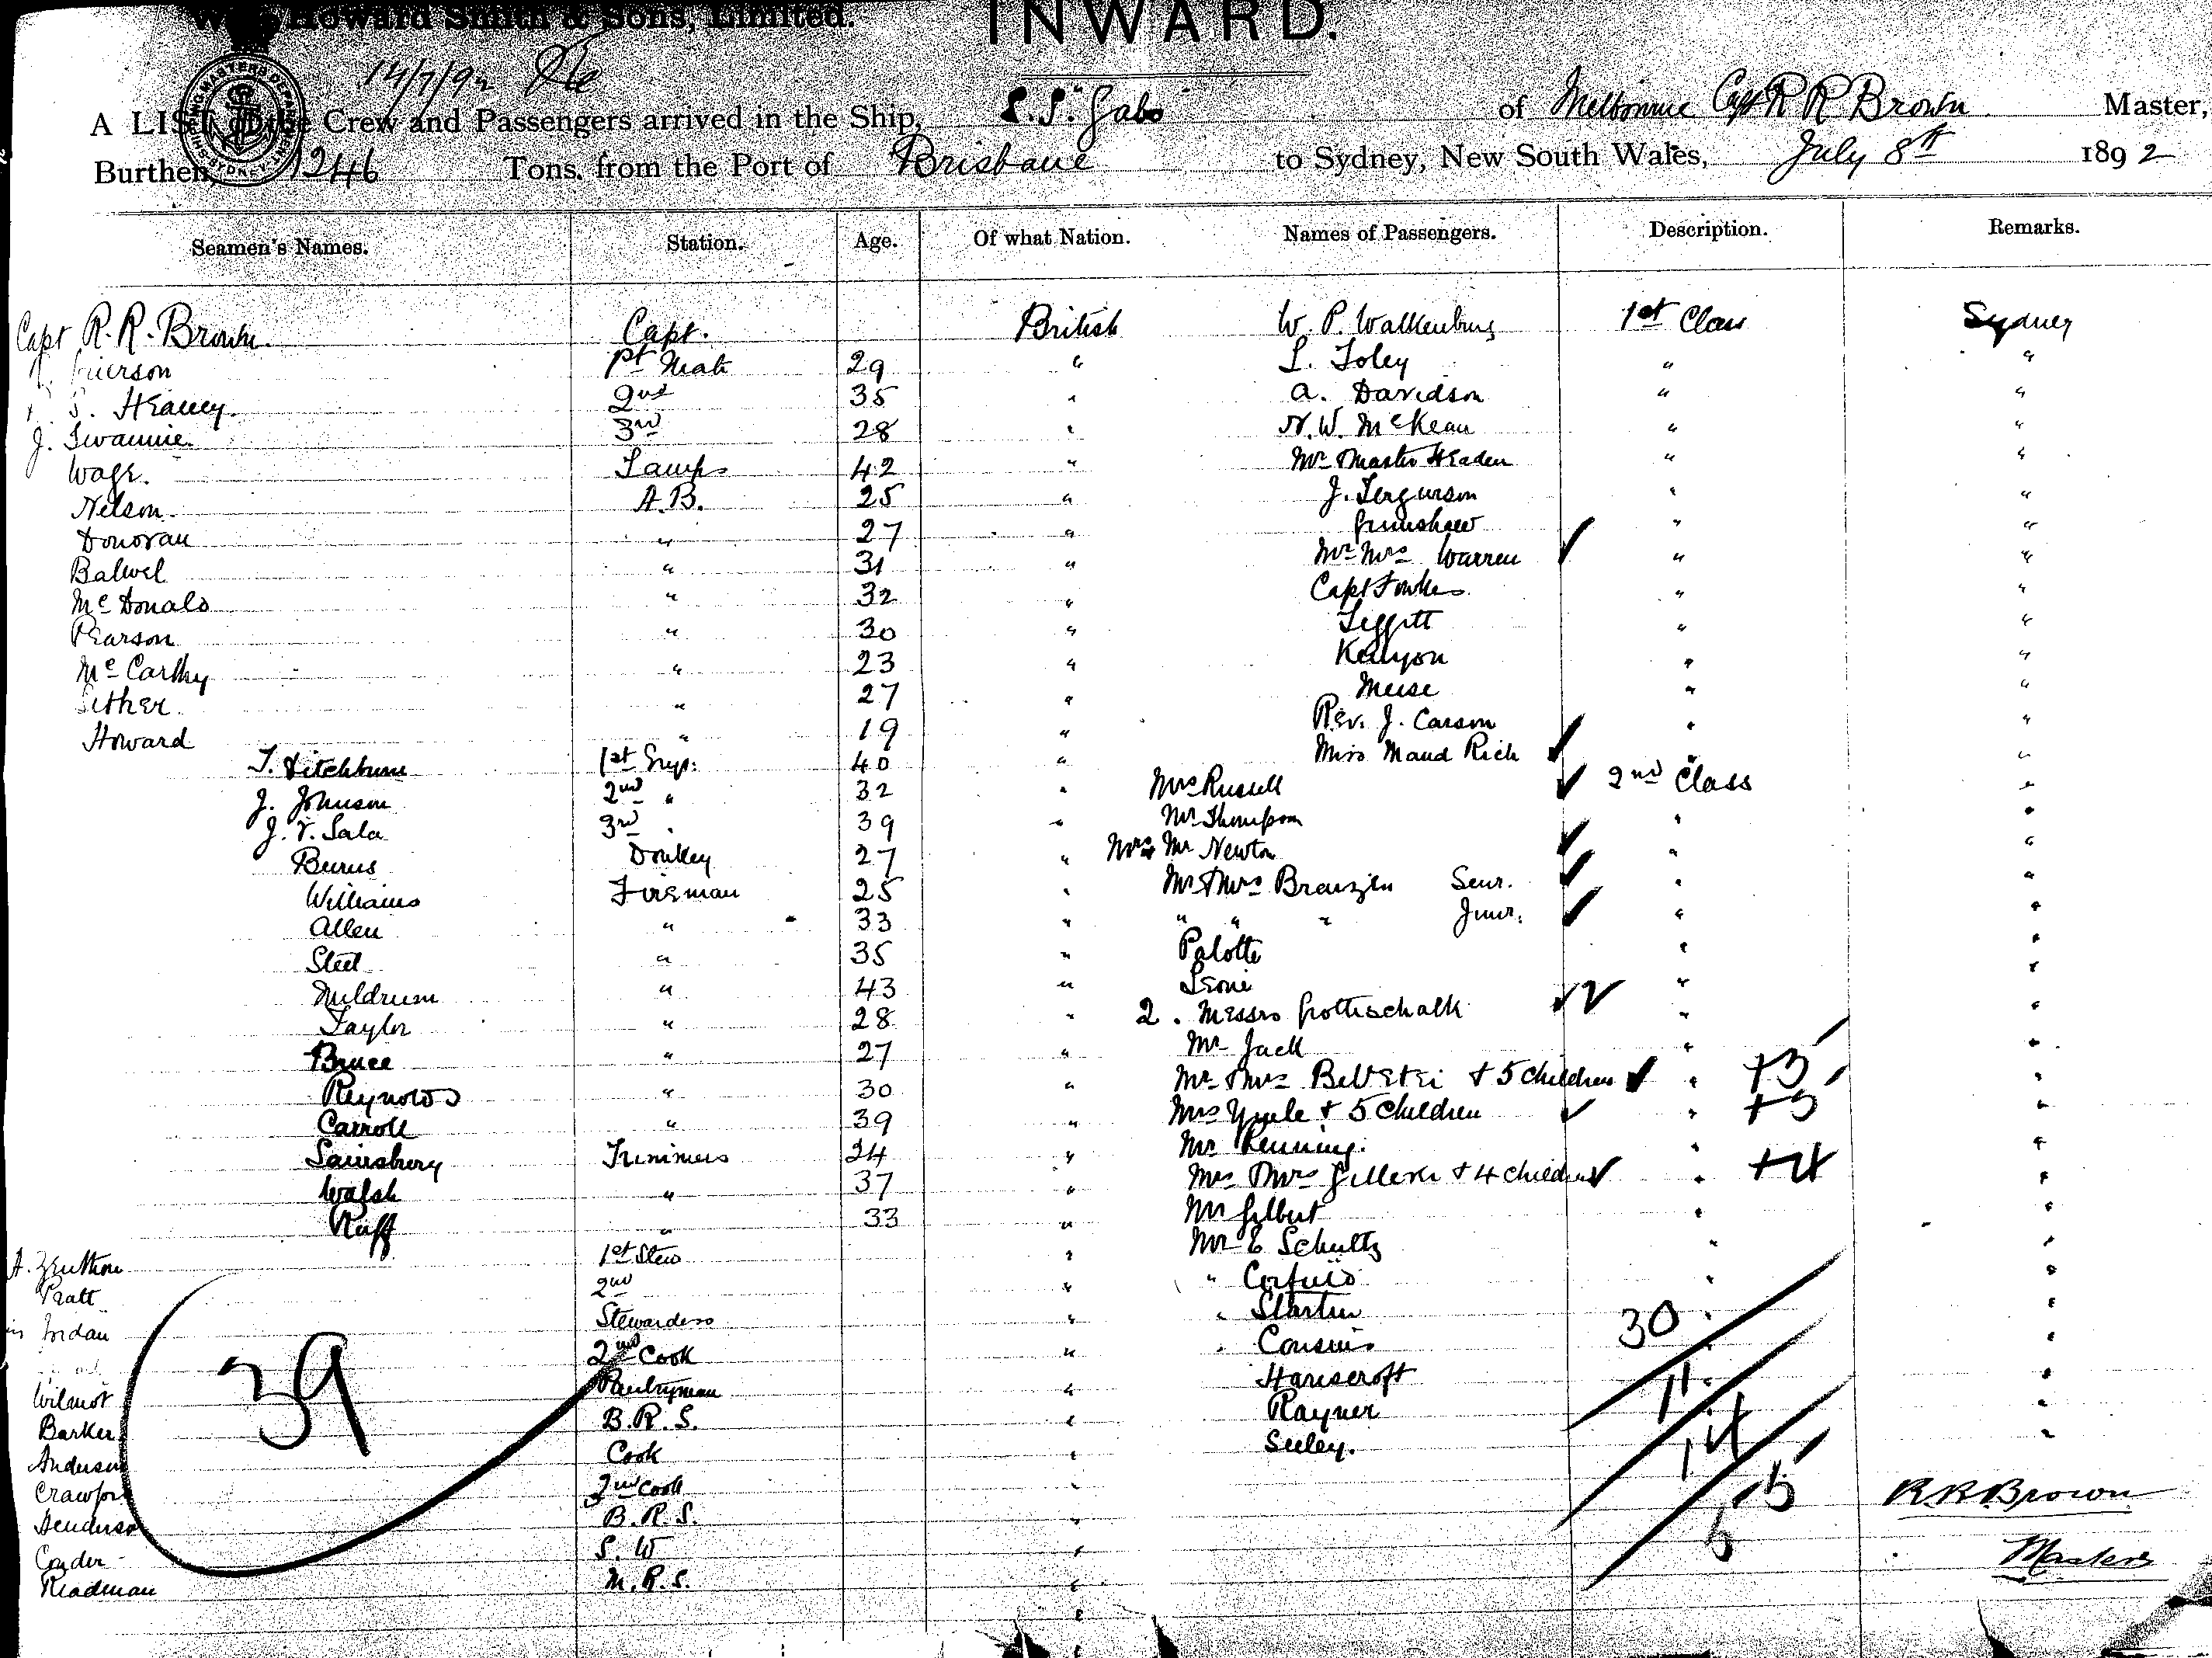 Wm. Howard Smith & Sons, Limited.
INWARD.
14/7/92
A LIST of the Crew and Passengers arrived in the Ship, S.S. "Gabo" of Melbourne Capt R R Brown Master,
Burthen, 1246 Tons, from the Port of Brisbane to Sydney, New South Wales, July 8th 1892
Seamen's Names. Station. Age. Of what Nation. Names of Passengers. Description. Remarks.
Capt R. R. Brown Capt. British W. P. Walkenburg 1st Class Sydney
1st Mate 29 " L. Foley " "
2nd 35 " A. Davidson " "
J. Swannie 3rd 28 " N. W. McKean " "
Lamps 42 " Mr Master Headen " "
Nelson A.B. 25 " J. Fergurson " "
Donovan " 27 " Grimshaw " "
Balwel " 31 " Mr Mrs Warren " "
McDonald " 32 " Capt Fowles " "
Pearson " 30 " Leggitt " "
McCarthy " 23 " Kenyon " "
" 27 " Meise " "
Howard " 19 " Rev. J. Carson " "
T. Ditchburn 1st Engr. 40 " Miss Maud Rich " "
J. Johnson 2nd " 32 " Mrs Russell 2nd Class "
J. V. Sala 3rd " 39 " Mr Thompson " "
Burns Donkey 27 " Mrs Mr Newton " "
Williams Fireman 25 " Mr & Mrs Senr. " "
Allen " 33 " " " " Junr. " "
Steel " 35 " Palotte " "
Meldrum " 43 " Leoni " "
Taylor " 28 " 2. Messrs Gottschalk " "
Bruce " 27 " Mr Jack " "
Reynolds " 30 " Mr & Mrs + 5 Children " "
Carroll " 39 " Mrs Yuele + 5 Children " +5 "
Sainsbury Trimmers 24 " Mr "
Walsh " 37 " + 4 Children " +4 "
Ruff " 33 " Mr Gilbert " "
A. Zeuthen 1st Stew " Mr E Schultz " "
Pratt 2nd " " " "
Jordan Stewardess " " " "
2nd Cook " " Cousins 30 "
Wilmot Pantryman " Hanscroft 11 "
Barker B.R.S. " Rayner "
Anderson Cook " Seeley. 14 "
Crawford 2nd Cook " R R Brown
Henderson B.R.S. " 5
Conder S.W " Master
Readman M.R.S. "
39